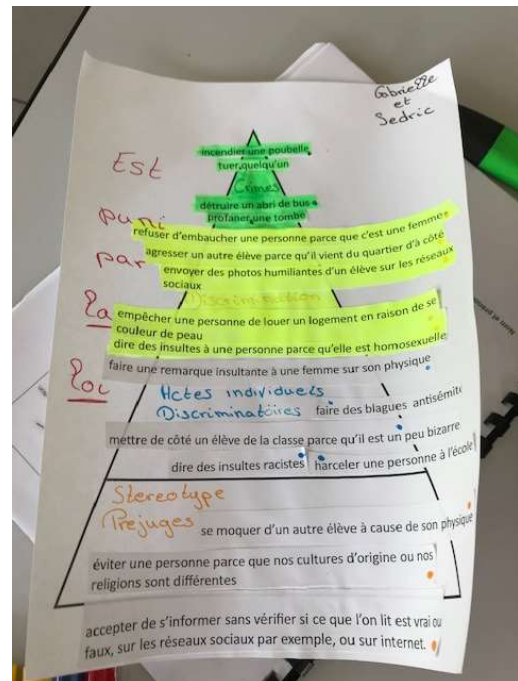 Gabrielle
et
Sedric
incendier une poubelle
Est
tuer quelqu'un
Crimes
détruire un abri de bus
puni
profaner une tombe
refuser d'embaucher une personne parce que c'est une femme
par
agresser un autre élève parce qu'il vient du quartier d'à côté
envoyer des photos humiliantes d'un élève sur les réseaux
sociaux
Discrimination
la
empêcher une personne de louer un logement en raison de se
couleur de peau
dire des insultes à une personne parce qu'elle est homosexuelle
loi
faire une remarque insultante à une femme sur son physique
Actes individuels
Discriminatoires faire des blagues antisémite
mettre de côté un élève de la classe parce qu'il est un peu bizarre
dire des insultes racistes harceler une personne à l'école
Stereotype
Prejuges se moquer d'un autre élève à cause de son physique
éviter une personne parce que nos cultures d'origine ou nos
religions sont différentes
accepter de s'informer sans vérifier si ce que l'on lit est vrai ou
faux, sur les réseaux sociaux par exemple, ou sur internet.